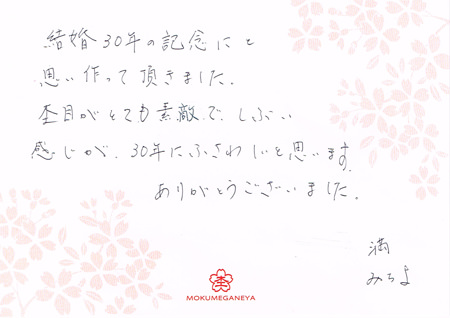 結婚30年の記念にと
思い作って頂きました。
杢目がとても素敵で、しぶい
感じが、30年にふさわしいと思います。
ありがとうございました。
満
みちよ
杢
MOKUMEGANEYA